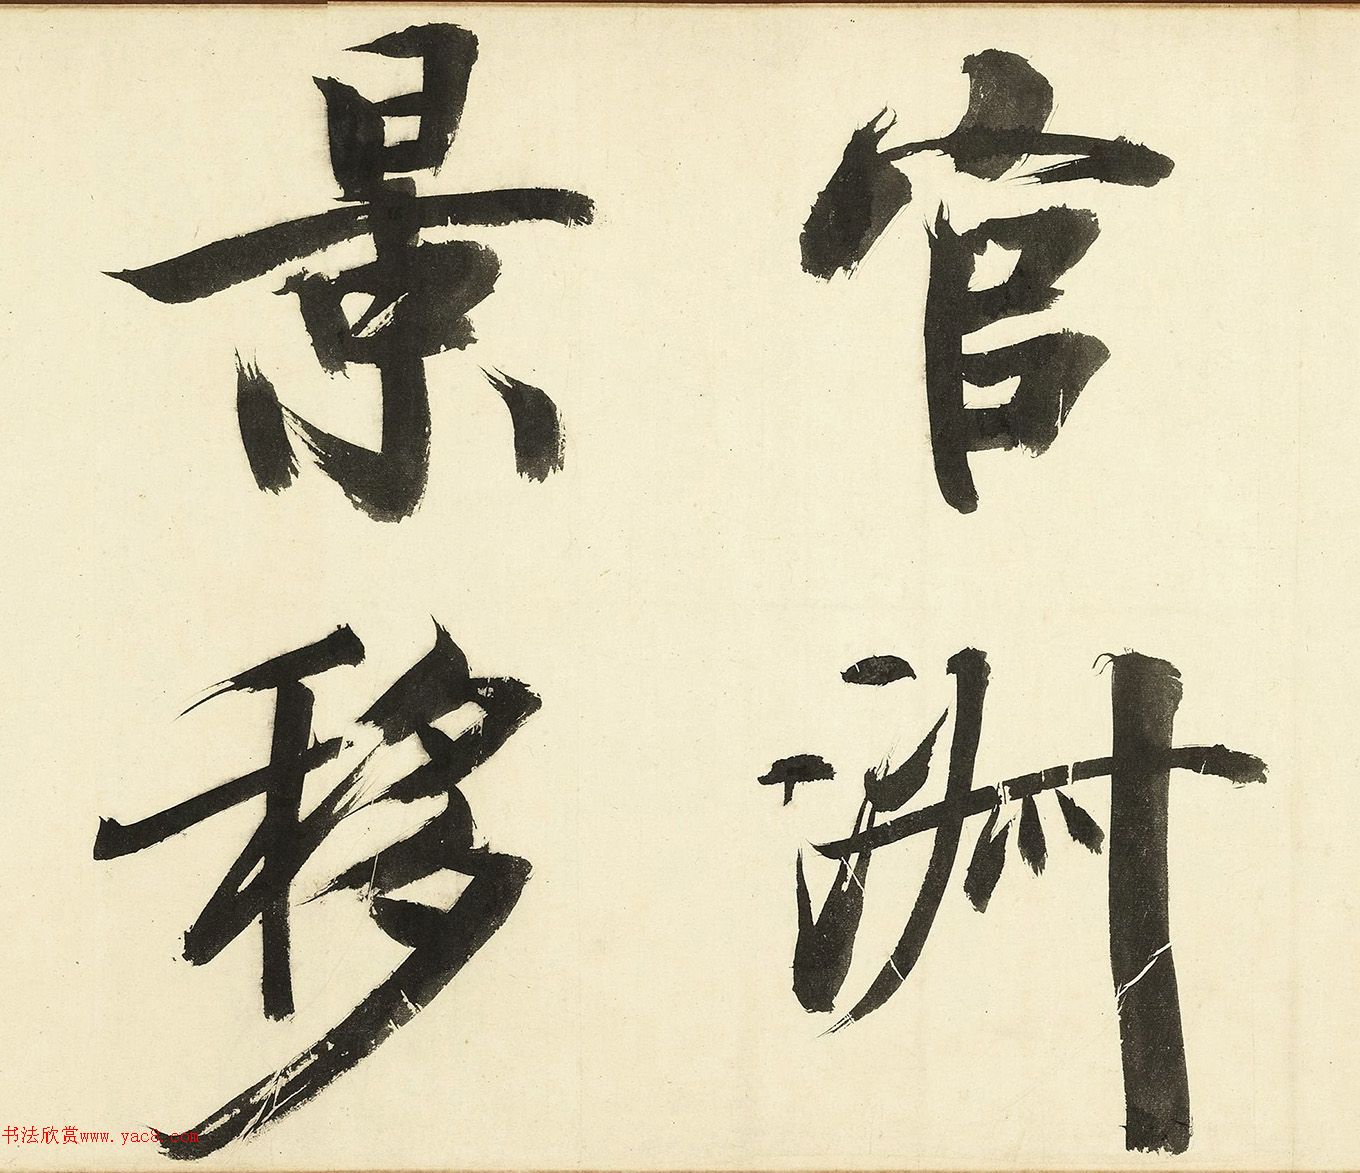 官洲
景移
书法欣赏www.yac8.com